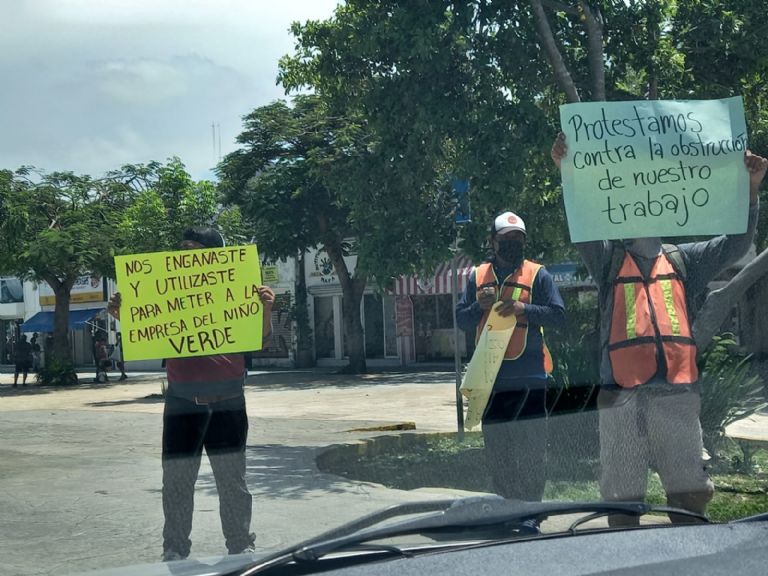 NOS ENGAÑASTE
Y UTILIZASTE
PARA METER A LA
EMPRESA DEL NIÑO
VERDE
Protestamos
contra la obstrucción
de nuestro
trabajo